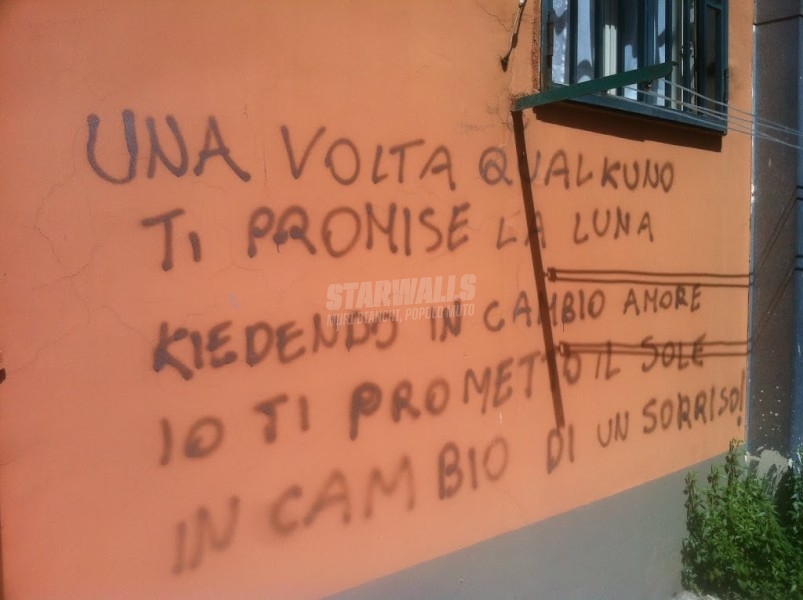 UNA VOLTA QUALKUNO
TI PROMISE LA LUNA
STARWALLS
MURI BIANCHI, POPOLO MUTO
KIEDENDO IN CAMBIO AMORE
IO TI PROMETTO IL SOLE
IN CAMBIO DI UN SORRISO!